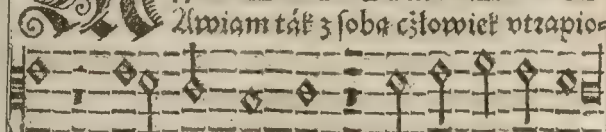 Awiam ták z sobą cżłowiek vtrapio⸗